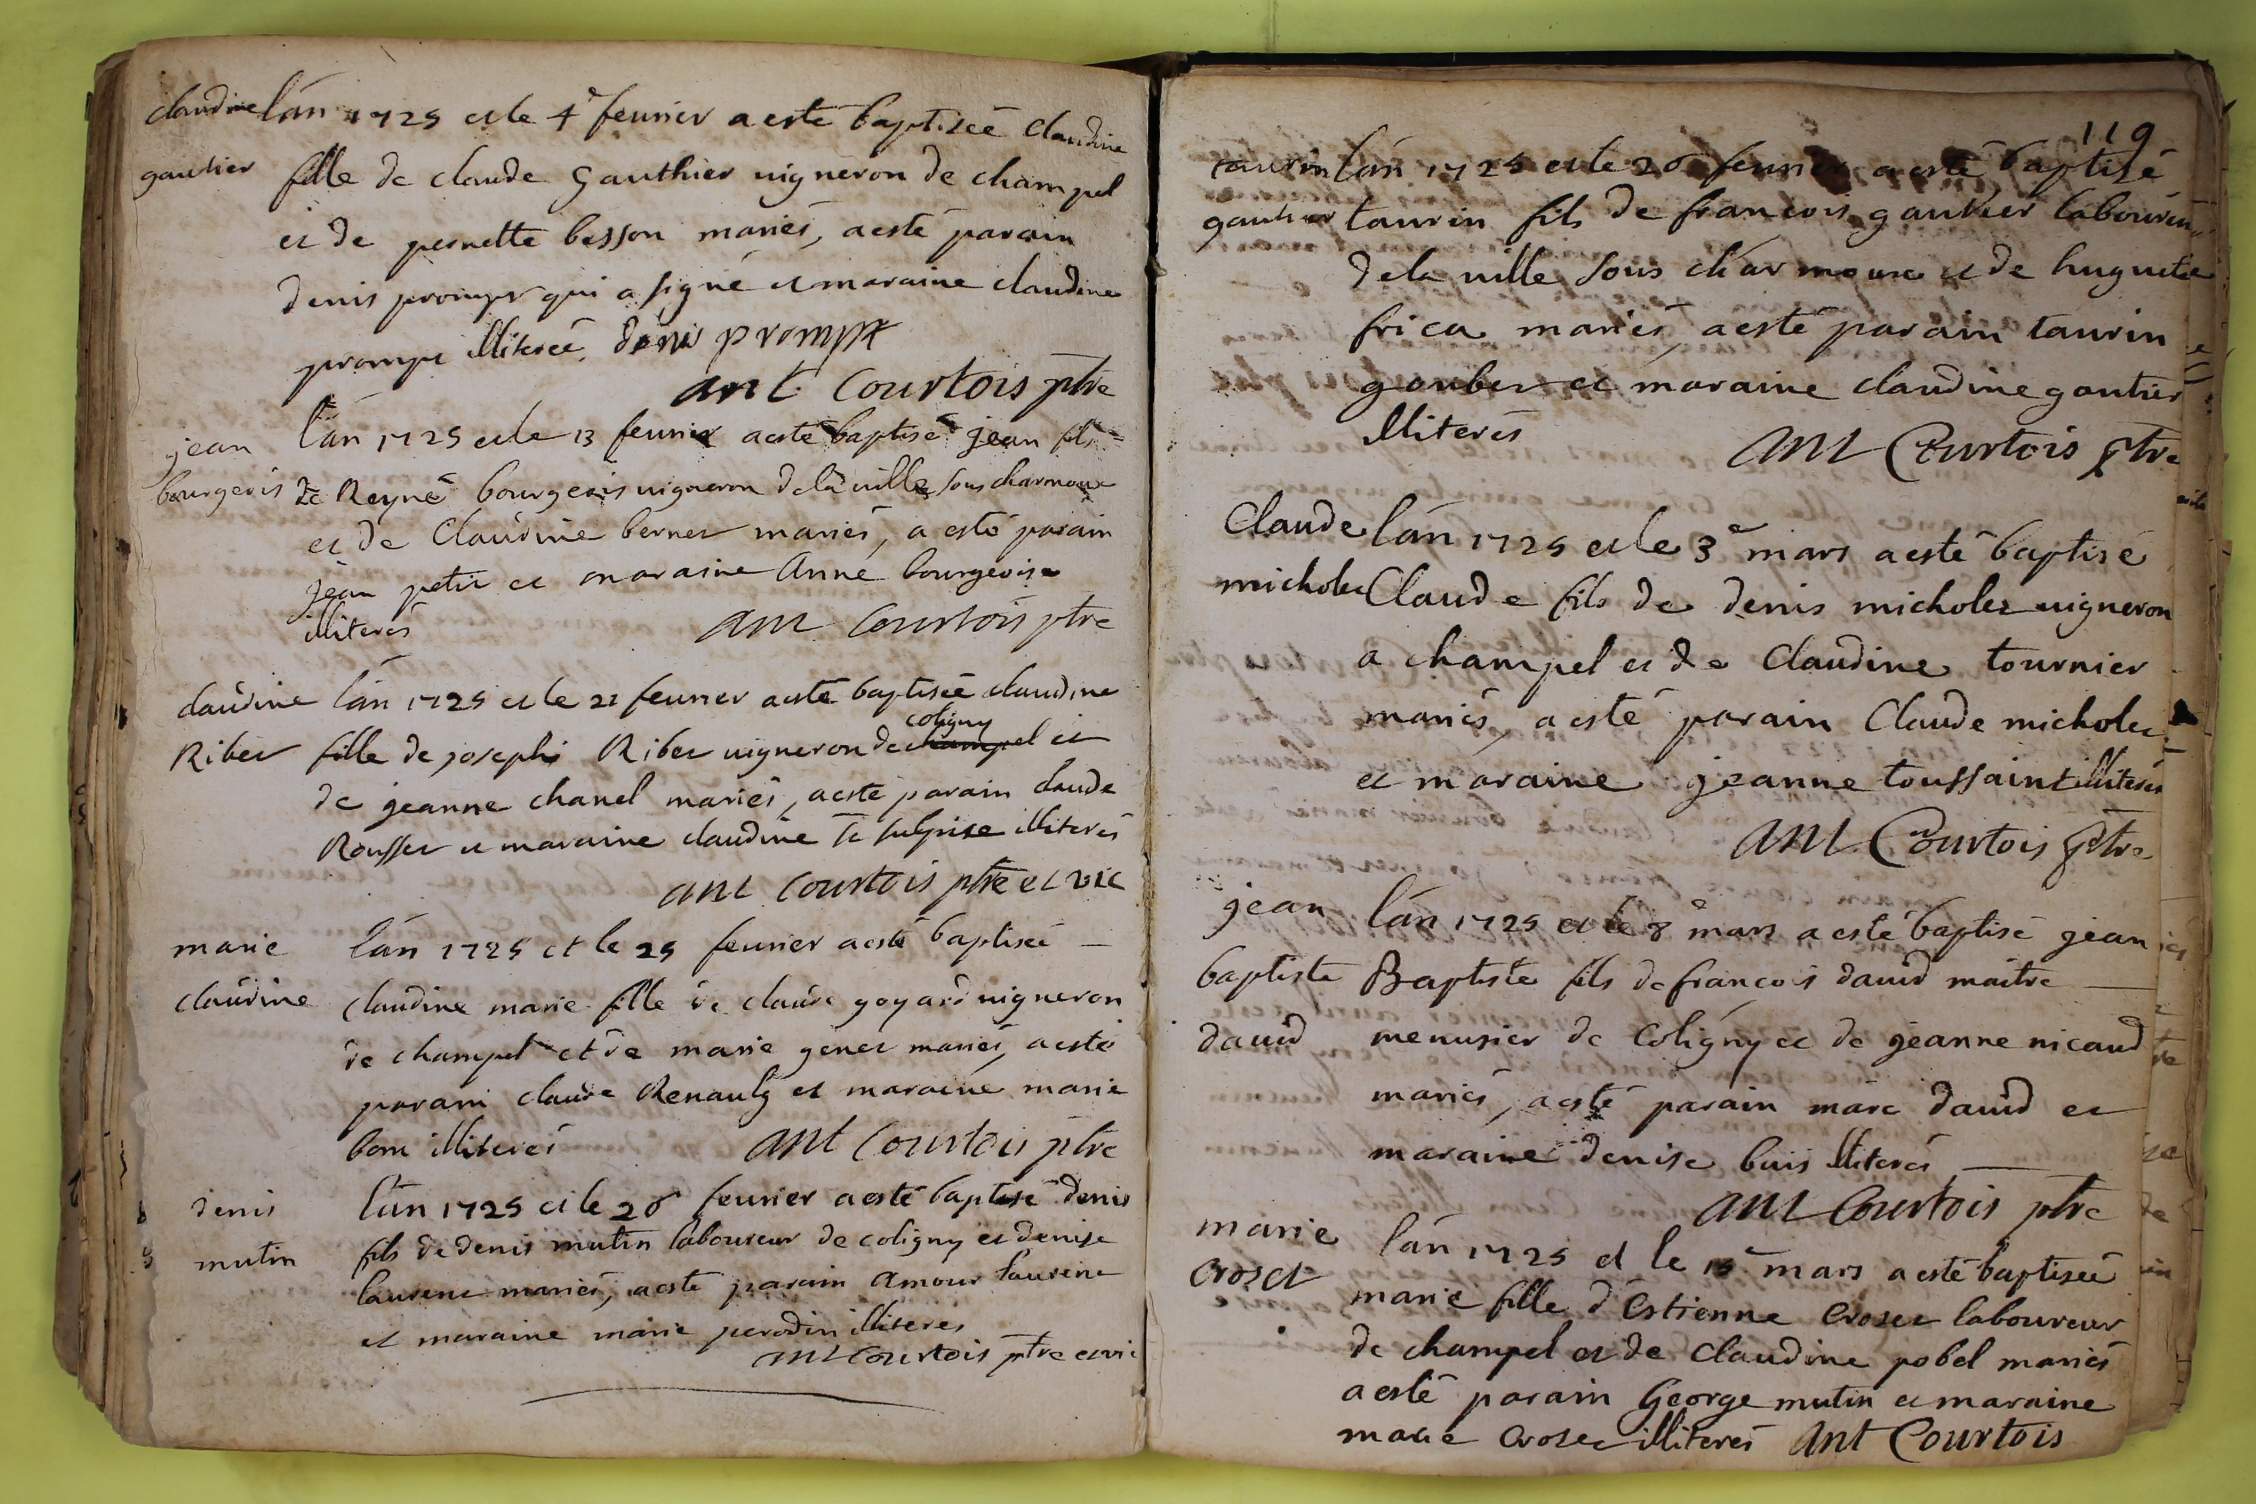 claudine lan 1725 et le 4e feurier a esté baptiseé claudine
gautier fille de claude gauthier uigneron de champel
et de pernette besson mariés, a esté parain
denis prompt qui a signé et maraine claudine
prompt illitereé denis prompt
ant Courtois ptre
jean lan 1725 et le 13 feurier a esté baptisé jean fils
bourgeois de Reyné bourgeois uigneron de la uille sous charmoux
et de Claudine bernet mariés, a esté parain
jean petit et maraine Anne bourgeoise
illiterés ant Courtois ptre
claudine lan 1725 et le 21 feurier a esté baptiseé claudine
coligny
Riber fille de joseph Riber uigneron de champel et
de jeanne chanel mariés, a esté parain claude
Rousset et maraine claudine st sulpise illiterés
ant Courtois ptre et vic
marie lan 1725 et le 25 feurier a esté baptiseé
claudine claudine marie fille de claude goyard uigneron
de champel et de marie genet mariés, a esté
parain claude Renault et maraine marie
bom illiterés ant Courtois ptre
denis lan 1725 et le 26 feurier a esté baptisé denis
mutin fils de denis mutin laboureur de coligny et denise
laurent mariés, a esté parain amour laurent
et maraine marie perodin illiteres
ant Courtois ptre et vic
119
taurin lan 1725 et le 26 feurier a esté baptisé
gautier taurin fils de francois gautier laboureur
de la uille sous charmoux et de huguette
frica mariés, a esté parain taurin
goubet et maraine claudine gautier
illiterés ant Courtois ptre
Claude lan 1725 et le 3e mars a esté baptisé
micholet Claude fils de denis micholet uigneron
a champel et de Claudine tournier
mariés, a esté parain Claude micholet
et maraine jeanne toussaint illiterés
ant Courtois ptre
jean lan 1725 et le 8e mars a esté baptisé jean
baptiste Baptiste fils de francois dauid maitre
dauid menusier de Coligny et de jeanne nicaud
mariés, a esté parain marc dauid et
maraine denise buis illiterés
ant Courtois ptre
marie lan 1725 et le 15e mars a esté baptiseé
Croset marie fille d'Estienne Croset laboureur
de champel et de Claudine pobel mariés
a esté parain George mutin et maraine
marie Croset illiterés Ant Courtois